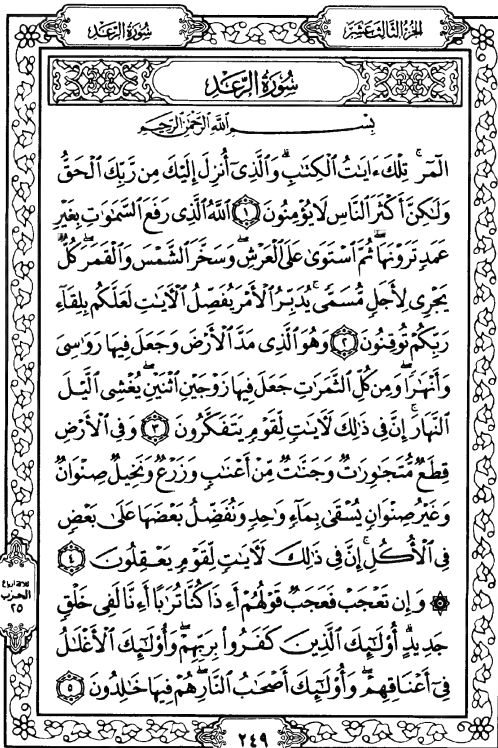 سُورَةُ الرَّعْدِ
الجُزْءُ الثَّالِثَ عَشَرَ
سُورَةُ الرَّعْدِ
بِسْمِ اللَّهِ الرَّحْمَٰنِ الرَّحِيمِ
الٓمٓر ۚ تِلْكَ ءَايَٰتُ ٱلْكِتَٰبِ ۗ وَٱلَّذِىٓ أُنزِلَ إِلَيْكَ مِن رَّبِّكَ ٱلْحَقُّ
وَلَٰكِنَّ أَكْثَرَ ٱلنَّاسِ لَا يُؤْمِنُونَ ١ ٱللَّهُ ٱلَّذِى رَفَعَ ٱلسَّمَٰوَٰتِ بِغَيْرِ
عَمَدٍ تَرَوْنَهَا ۖ ثُمَّ ٱسْتَوَىٰ عَلَى ٱلْعَرْشِ ۖ وَسَخَّرَ ٱلشَّمْسَ وَٱلْقَمَرَ ۖ كُلٌّ
يَجْرِى لِأَجَلٍ مُّسَمًّى ۚ يُدَبِّرُ ٱلْأَمْرَ يُفَصِّلُ ٱلْءَايَٰتِ لَعَلَّكُم بِلِقَآءِ
رَبِّكُمْ تُوقِنُونَ ٢ وَهُوَ ٱلَّذِى مَدَّ ٱلْأَرْضَ وَجَعَلَ فِيهَا رَوَٰسِىَ
وَأَنْهَٰرًا ۖ وَمِن كُلِّ ٱلثَّمَرَٰتِ جَعَلَ فِيهَا زَوْجَيْنِ ٱثْنَيْنِ ۖ يُغْشِى ٱلَّيْلَ
ٱلنَّهَارَ ۚ إِنَّ فِى ذَٰلِكَ لَءَايَٰتٍ لِّقَوْمٍ يَتَفَكَّرُونَ ٣ وَفِى ٱلْأَرْضِ
قِطَعٌ مُّتَجَٰوِرَٰتٌ وَجَنَّٰتٌ مِّنْ أَعْنَٰبٍ وَزَرْعٌ وَنَخِيلٌ صِنْوَانٌ
وَغَيْرُ صِنْوَانٍ يُسْقَىٰ بِمَآءٍ وَٰحِدٍ وَنُفَضِّلُ بَعْضَهَا عَلَىٰ بَعْضٍ
فِى ٱلْأُكُلِ ۚ إِنَّ فِى ذَٰلِكَ لَءَايَٰتٍ لِّقَوْمٍ يَعْقِلُونَ ٤
۞ وَإِن تَعْجَبْ فَعَجَبٌ قَوْلُهُمْ أَءِذَا كُنَّا تُرَٰبًا أَءِنَّا لَفِى خَلْقٍ
جَدِيدٍ ۗ أُو۟لَٰٓئِكَ ٱلَّذِينَ كَفَرُوا۟ بِرَبِّهِمْ ۖ وَأُو۟لَٰٓئِكَ ٱلْأَغْلَٰلُ
فِىٓ أَعْنَاقِهِمْ ۖ وَأُو۟لَٰٓئِكَ أَصْحَٰبُ ٱلنَّارِ ۖ هُمْ فِيهَا خَٰلِدُونَ ٥
ثلاثة أرباع
الحزب
٢٥
٢٤٩